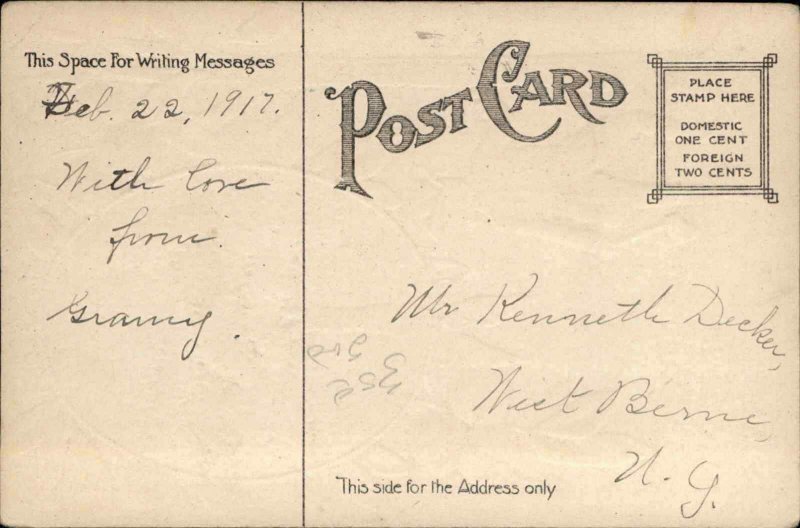 This Space For Writing Messages
Feb. 22, 1917.
With love
from
Gramy.
POST CARD
PLACE
STAMP HERE
DOMESTIC
ONE CENT
FOREIGN
TWO CENTS
Mr Kenneth Decker,
West Berne,
N. Y.
This side for the Address only